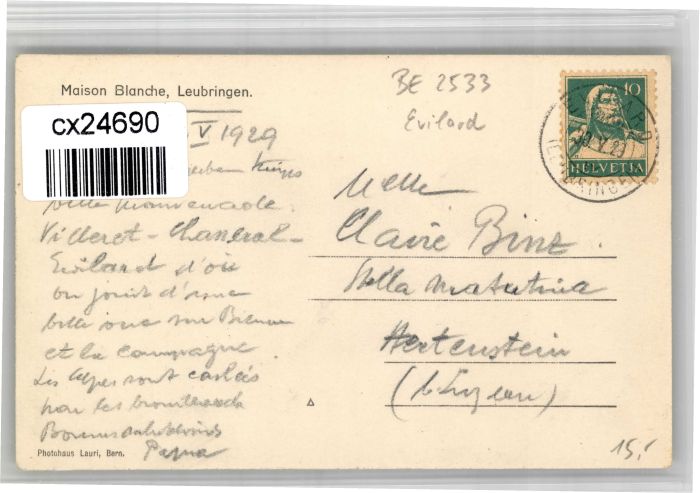 Maison Blanche, Leubringen.
BE 2533
Evilard
cx24690
V 1929
belle promenade.
Villeret - Chasseral -
Evilard d'où
on jouit d'une
belle vue sur Bienne
et la campagne.
Les Alpes sont cachées
par les brouillards
Papa
Photohaus Lauri, Bern.
10
HELVETIA
Melle
Claire Binz
Stella Matutina
Hertenstein
(b. Luzern)
15,-